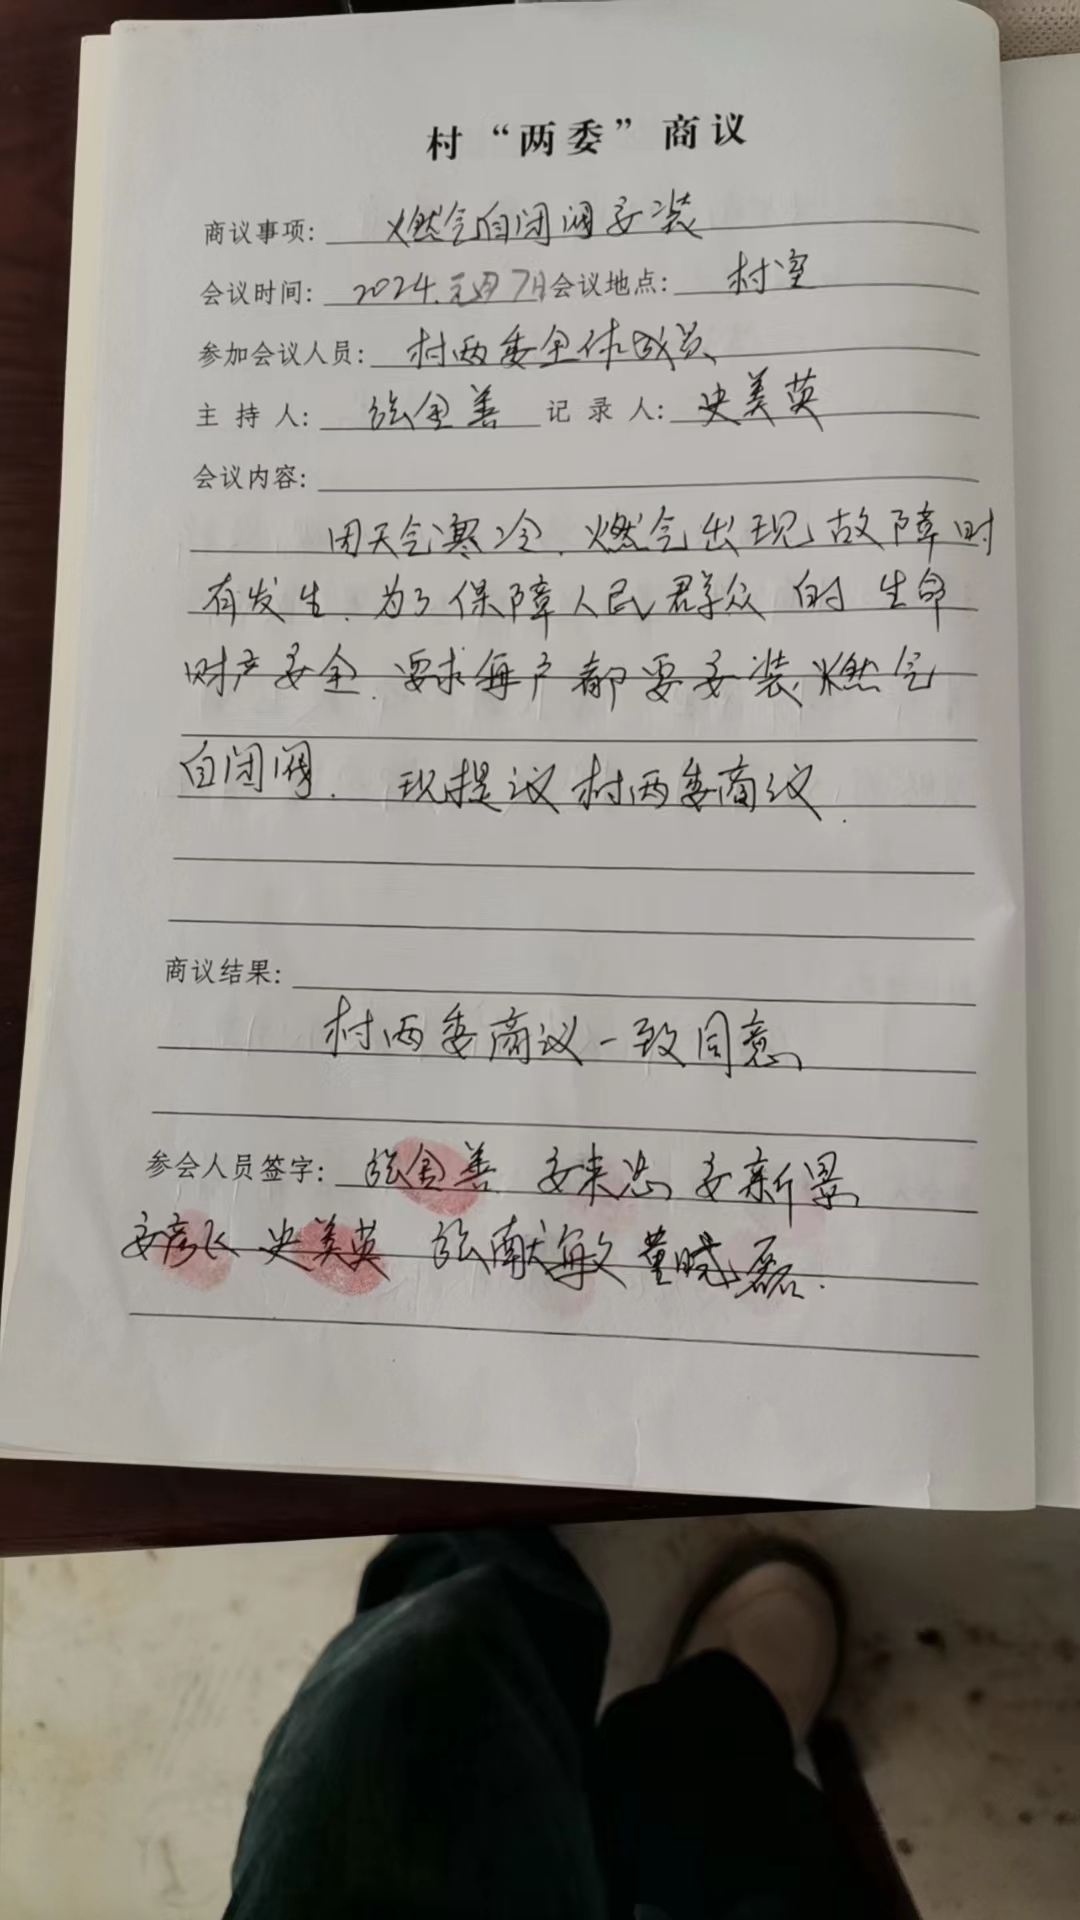 村“两委”商议
商议事项: 燃气自闭阀安装
会议时间: 2024.元月7日 会议地点: 村室
参加会议人员: 村两委全体成员
主持人: 张金善 记录人: 史美英
会议内容:
因天气寒冷.燃气出现故障时
有发生.为了保障人民群众的生命
财产安全.要求每户都要安装燃气
自闭阀.现提议村两委商议.
商议结果:
村两委商议一致同意
参会人员签字: 张金善 安来 安新景
安彦飞 史美英 张献敏 董晓磊.